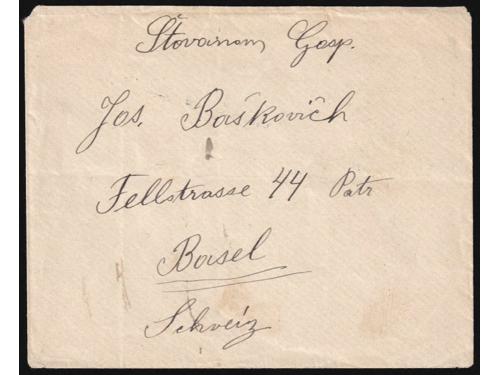 Štovanom Gosp.
Jos. Baškovičh
Fellstrasse 44 Patr
Basel
Schveiz